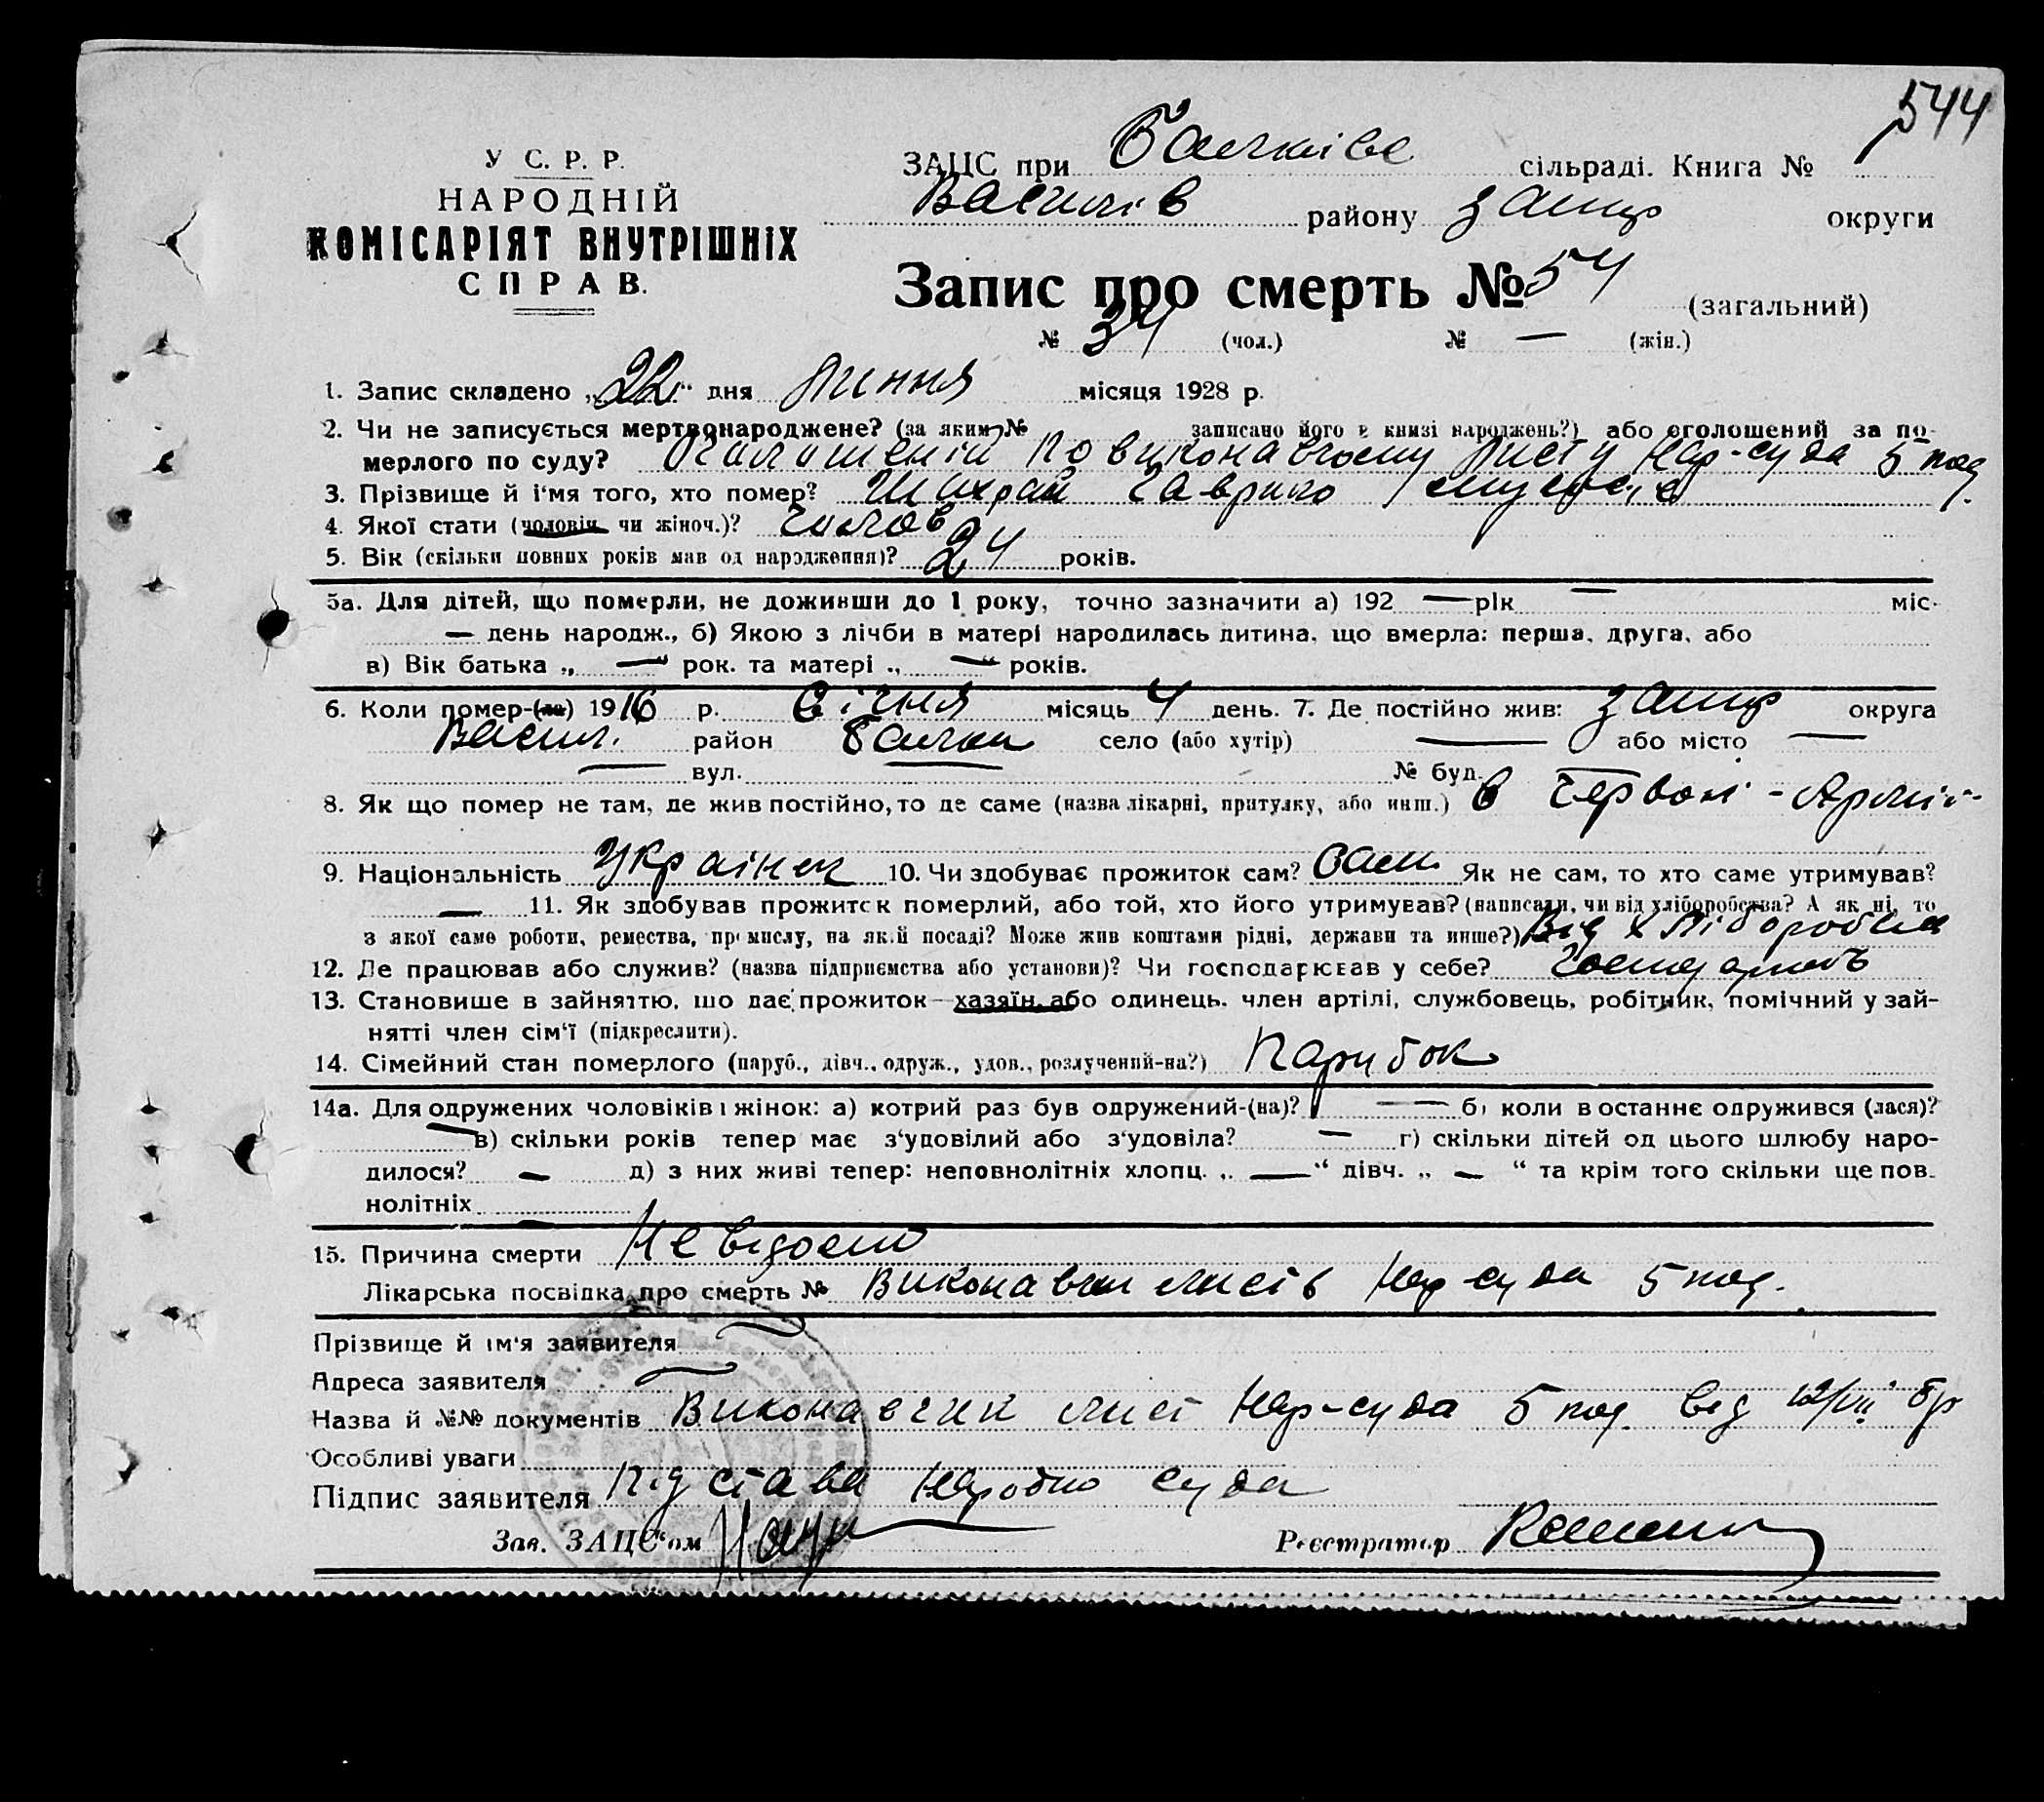 544
У С. Р. Р.
НАРОДНІЙ
КОМІСАРІЯТ ВНУТРІШНІХ
СПРАВ.
ЗАЦС при Балківс сільраді. Книга №
Василів району Запор округи
Запис про смерть № 54 (загальний)
№ 34 (чол.) № — (жін.)
1. Запис складено „22“ дня липня місяця 1928 р.
2. Чи не записується мертвонароджене? (за яким № записано його в книзі народжень?) або оголошений за по-
мерлого по суду? Оголошений по виконавчому листу Нар-суда 5 под.
3. Прізвище й і'мя того, хто помер? Шахрай Гаврило
4. Якої стати (чоловіч. чи жіноч.)? чолов
5. Вік (скільки повних років мав од народження)? 24 років.
5а. Для дітей, що померли, не доживши до 1 року, точно зазначити а) 192 — рік — міс.
— день народж., б) Якою з лічби в матері народилась дитина, що вмерла: перша, друга, або
в) Вік батька „ — “ рок. та матері „ — “ років.
6. Коли помер-(ла) 1916 р. січня місяць 4 день. 7. Де постійно жив: Запор округа
Васил. район Балки село (або хутір) — або місто —
— вул. — № буд. —
8. Як що помер не там, де жив постійно, то де саме (назва лікарні, притулку, або инш.) в Червоні-Армії
9. Національність Українец 10. Чи здобуває прожиток сам? Сам Як не сам, то хто саме утримував?
— 11. Як здобував прожиток померлий, або той, хто його утримував? (написати, чи від хліборобства? А як ні, то
з якої саме роботи, ремества, промислу, на якій посаді? Може жив коштами рідні, держави та инше?) Від хліборобства
12. Де працював або служив? (назва підприємства або установи)? Чи господарював у себе?
13. Становище в зайняттю, що дає прожиток—хазяїн, або одинець, член артілі, службовець, робітник, помічний у зай-
нятті член сім'ї (підкреслити).
14. Сімейний стан померлого (паруб., дівч., одруж., удов., розлучений-на?) Парубок
14а. Для одружених чоловіків і жінок: а) котрий раз був одружений-(на)? — б) коли востаннє одружився (лася)?
— в) скільки років тепер має з'удовілий або з'удовіла? — г) скільки дітей од цього шлюбу наро-
дилося? — д) з них живі тепер: неповнолітніх хлопц. „ — “ дівч. „ — “ та крім того скільки ще пов-
нолітніх —
15. Причина смерти Невідомо
Лікарська посвідка про смерть № Виконавчи листь Нар суда 5 под.
Прізвище й ім'я заявителя
Адреса заявителя
Назва й №№ документів Виконавчий лист Нар-суда 5 под. від 12/VII бр
Особливі уваги
Підпис заявителя Підстава Народно суда
Зав. ЗАЦС'ом
Реєстратор